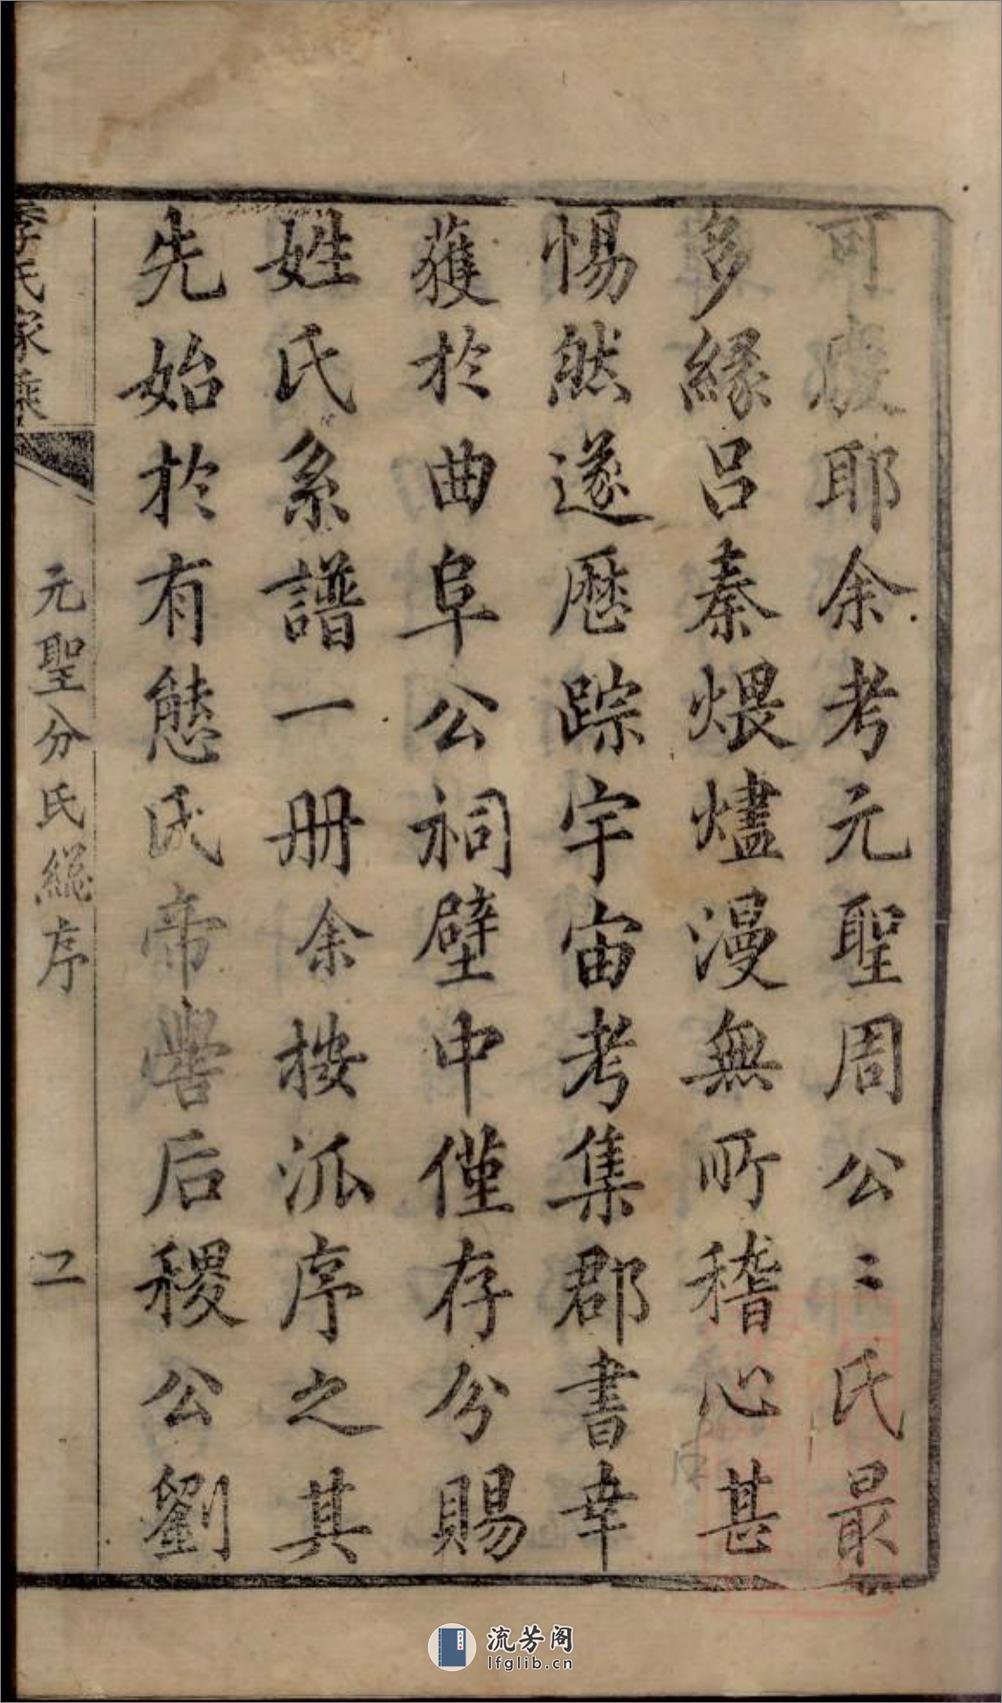 可廢耶余考元聖周公〻氏最
多緣呂秦煨燼漫無所稽心甚
惕然遂歷踪宇宙考集郡書幸
獲於曲阜公祠壁中僅存分賜
姓氏系譜一册余按派序之其
先始於有態氏帝嚳后稷公劉
氏家乘
元聖分氏總序
二
流芳阁
lfglib.cn